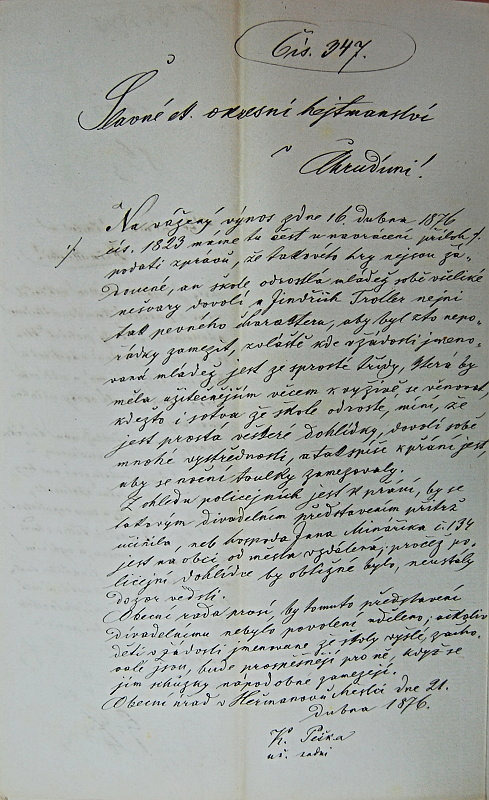 Čís. 347.
Slavné ct. okresní hejtmanství
v Chrudimi!
Na vážený výnos z dne 16. dubna 1876
čís. 1823 máme tu čest u navrácení příloh ./.
./. podati zprávu, že takovéto hry nejsou žá-
doucné, an škole odrostlá mládež sobě veliké
nešvary dovolí a Jindřich Troller nejní
tak pevného charakteru, aby byl sto nepo-
řádky zamezit, zvláště kde v žádosti jmeno-
vaná mládež jest ze sprosté třídy, která by
měla užitečnějším věcem k výživě se věnovat,
kdežto i sotva ze škole odroste, míní, že
jest prosta veškeré dohlídky, dovolí sobě
mnohé výstřednosti, a tak spíše k přání jest,
aby se noční toulky zamezovaly.
Z ohledu policejních jest k přání, by se
takovým divadelním představením přítrž
učinila, neb hospoda Jana Minaříka č. 134
jest na obci od města vzdálena, pročež po-
licejní dohlídce by obtížné bylo, neustálý
dozor vésti.
Obecní rada prosí, by tomuto představení
divadelnímu nebylo povolení uděleno; ačkoliv
děti v žádosti jmenované ze školy vyšlé, zacho-
valé jsou, bude prospěšnější pro ně, když se
jim schůzky nápodobné zamezejí.
Obecní úřad v Heřmanově Městci dne 21.
dubna 1876.
K. Peška
radní